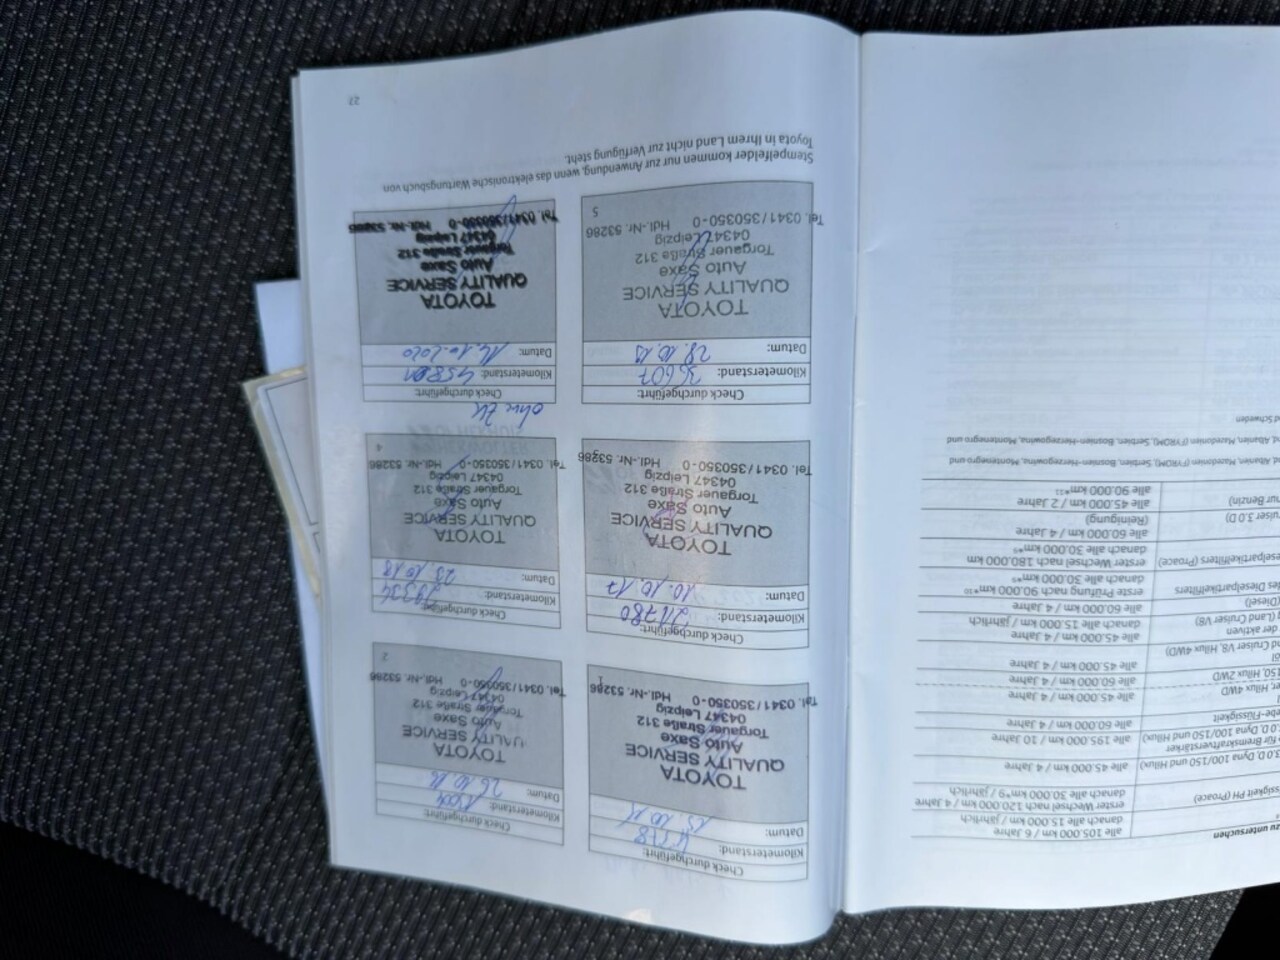 zu untersuchen
alle 105.000 km / 6 Jahre
danach alle 15.000 km / jährlich
ssigkeit PH (Proace)
erster Wechsel nach 120.000 km / 4 Jahre
danach alle 30.000 km*9 / jährlich
alle 45.000 km / 4 Jahre
für Bremskraftverstärker
alle 195.000 km / 10 Jahre
alle 60.000 km / 4 Jahre
alle 45.000 km / 4 Jahre
150, Hilux 2WD
alle 60.000 km / 4 Jahre
alle 45.000 km / 4 Jahre
der aktiven
(Land Cruiser V8)
alle 45.000 km / 4 Jahre
danach alle 15.000 km / jährlich
(Diesel)
alle 60.000 km / 4 Jahre
des Dieselpartikelfilters
erste Prüfung nach 90.000 km*10
danach alle 30.000 km*9
eselpartikelfilters (Proace)
erster Wechsel nach 180.000 km
danach alle 30.000 km*9
ruiser 3.0 D)
alle 60.000 km / 4 Jahre
(Reinigung)
nur Benzin)
alle 45.000 km / 2 Jahre
alle 90.000 km*11
Albanien, Mazedonien (FYROM), Serbien, Bosnien-Herzegowina, Montenegro und
Albanien, Mazedonien (FYROM), Serbien, Bosnien-Herzegowina, Montenegro und
Schweden
Check durchgeführt:
Kilometerstand:
Datum:
TOYOTA
QUALITY SERVICE
Auto Saxe
Torgauer Straße 312
04347 Leipzig
Tel. 0341/350350-0 Hdl.-Nr. 53286
1
Check durchgeführt:
Kilometerstand:
Datum: 26.10.16
TOYOTA
QUALITY SERVICE
Auto Saxe
Torgauer Straße 312
04347 Leipzig
Tel. 0341/350350-0 Hdl.-Nr. 53286
2
Check durchgeführt:
Kilometerstand: 21780
Datum: 10.10.17
TOYOTA
QUALITY SERVICE
Auto Saxe
Torgauer Straße 312
04347 Leipzig
Tel. 0341/350350-0 Hdl.-Nr. 53286
3
Check durchgeführt:
Kilometerstand: 29334
Datum: 23.10.18
TOYOTA
QUALITY SERVICE
Auto Saxe
Torgauer Straße 312
04347 Leipzig
Tel. 0341/350350-0 Hdl.-Nr. 53286
4
Check durchgeführt:
Kilometerstand: 36607
Datum: 28.10.19
TOYOTA
QUALITY SERVICE
Auto Saxe
Torgauer Straße 312
04347 Leipzig
Tel. 0341/350350-0 Hdl.-Nr. 53286
5
ohne
Check durchgeführt:
Kilometerstand:
Datum: 14.10.2020
TOYOTA
QUALITY SERVICE
Auto Saxe
Torgauer Straße 312
04347 Leipzig
Tel. 0341/350350-0 Hdl.-Nr. 53286
Stempelfelder kommen nur zur Anwendung, wenn das elektronische Wartungsbuch von
Toyota in Ihrem Land nicht zur Verfügung steht.
27